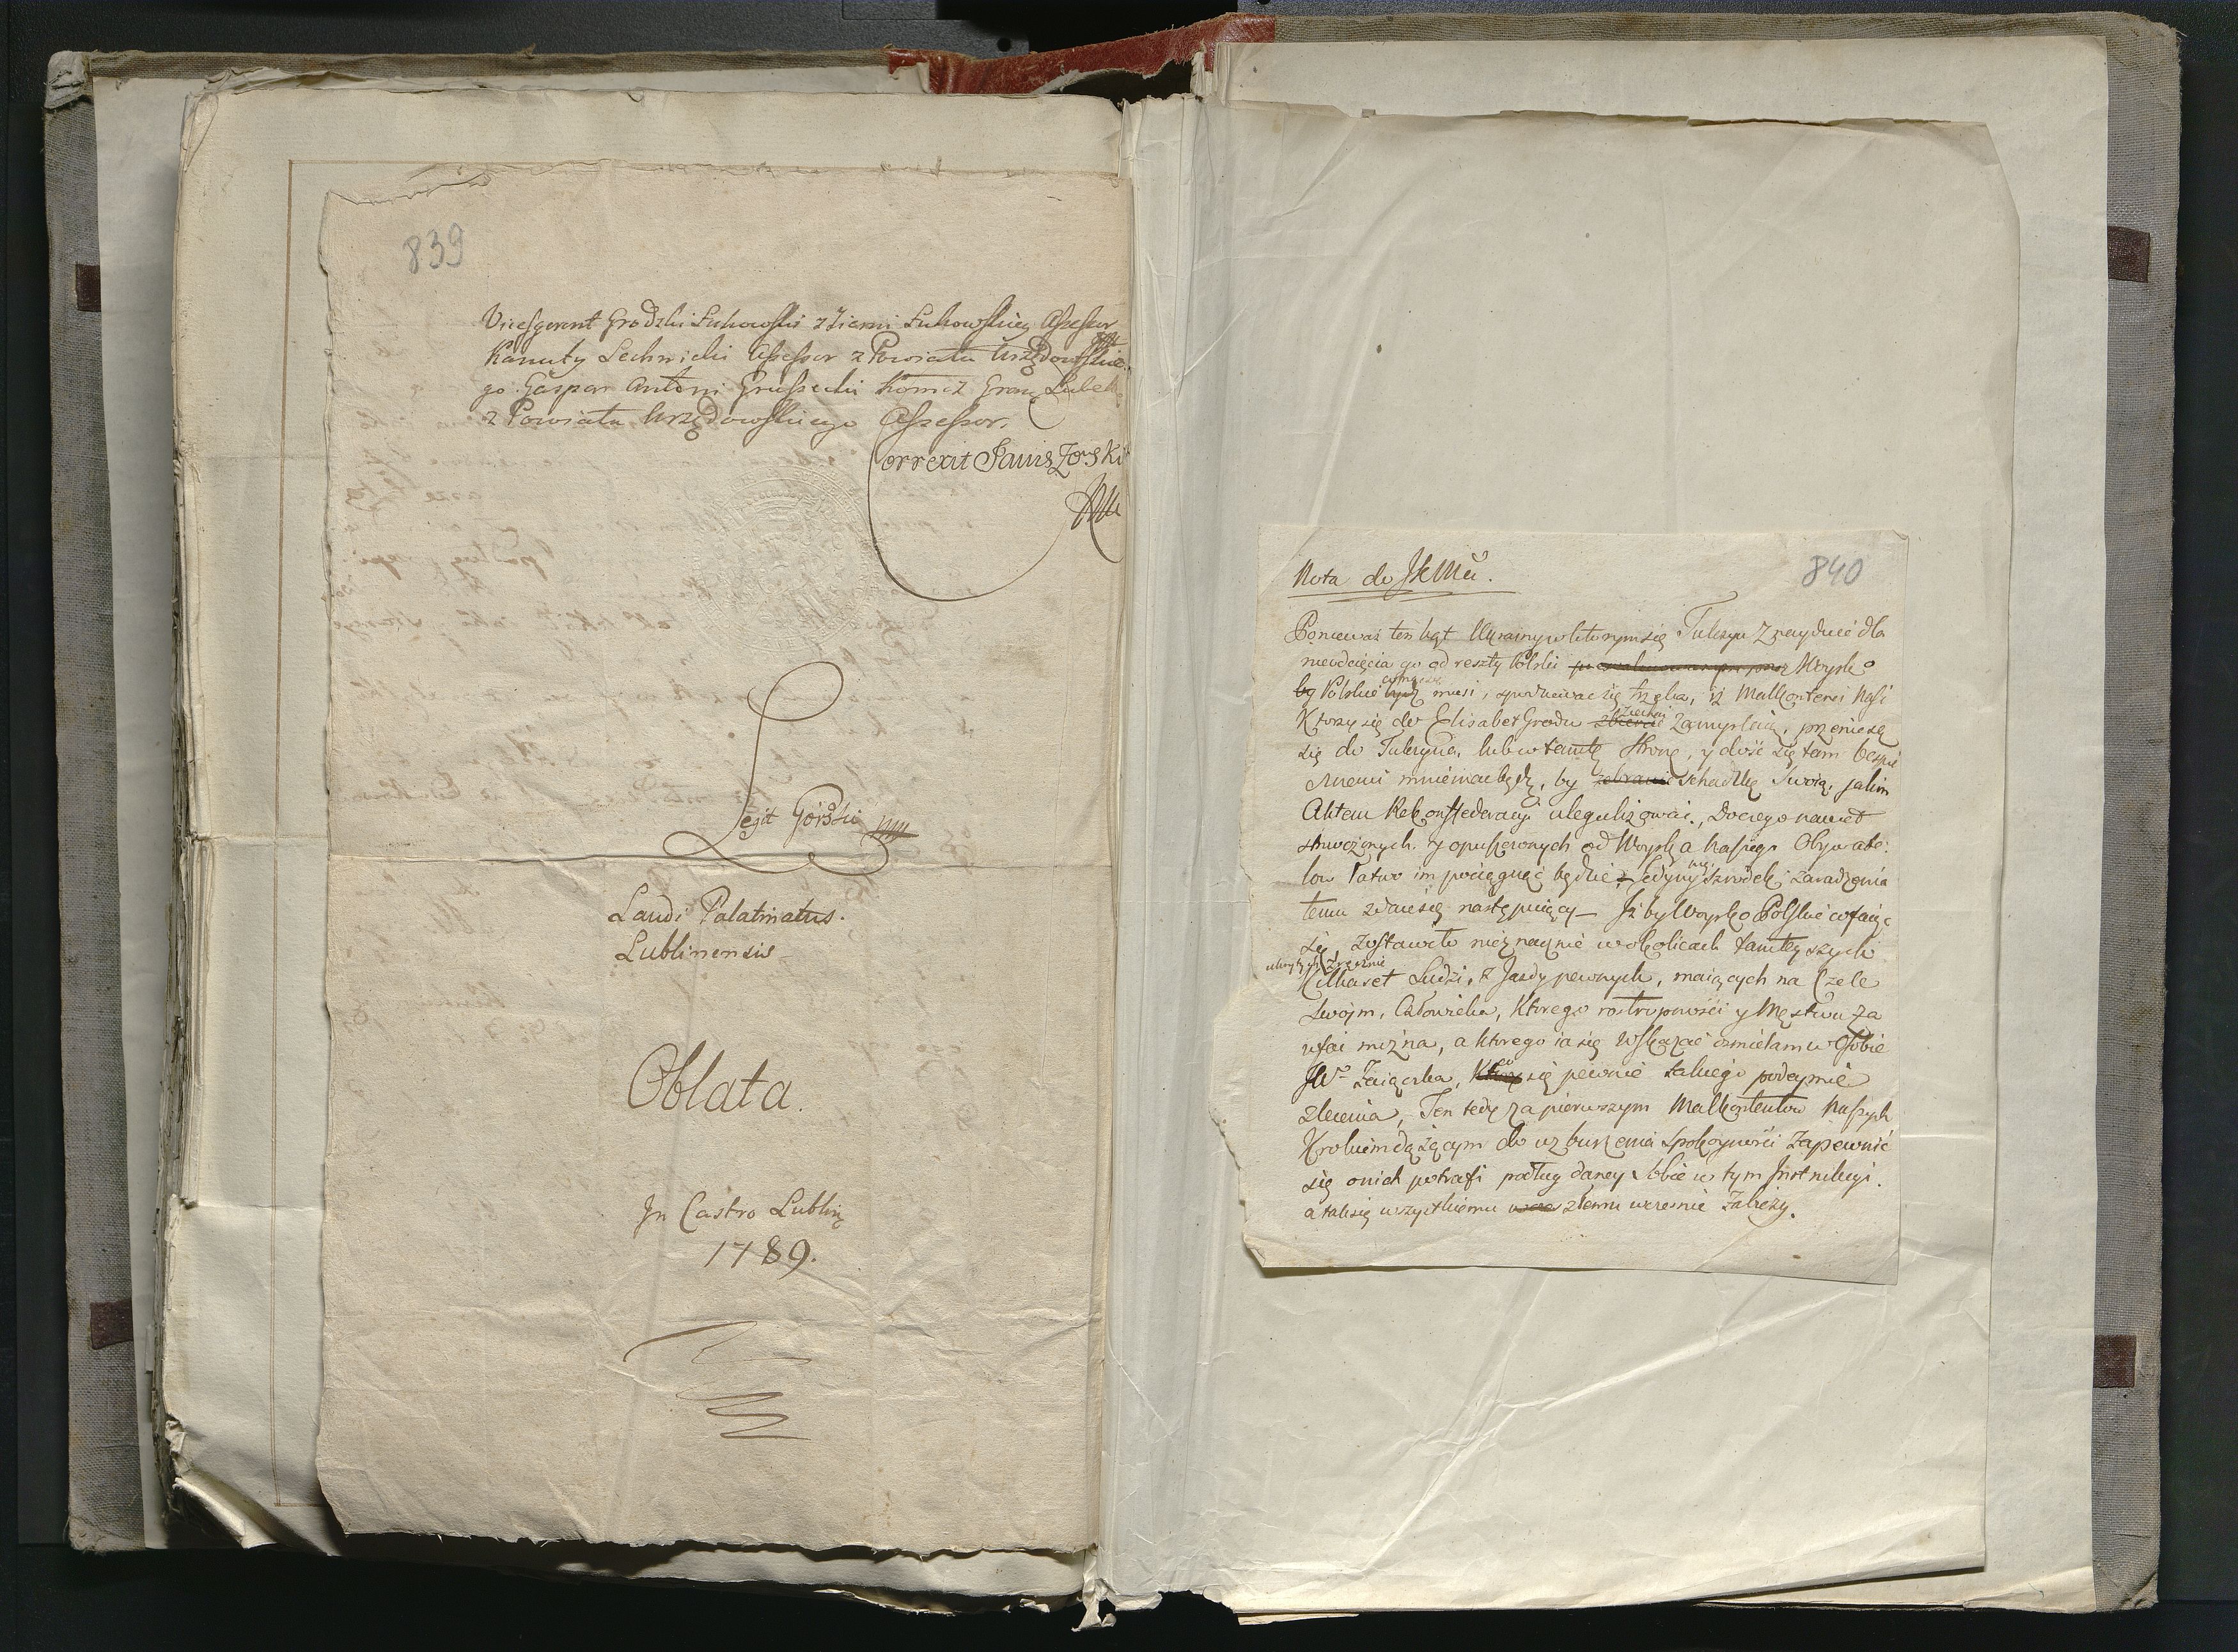 839
Vicesgerent Grodzki Łukowski z Ziemi Łukowskiey Assessor
Kanuty Lechnicki Assessor z Powiatu Urzędowskie-
go Gaspar Antoni Gruszecki Komor Gran Lubel
z Powiatu Urzędowskiego Assessor.
Correxit
Legit Górski mp
Laudi Palatinatus
Lublinensis
Oblata.
In Castro Lublin
1789.
840
Nota do JKMci.
Ponieważ ten kąt Ukrainy w ktorym się Tulczyn znayduie dla
nieodcięcia go od reszty Polski Woysko
Polskie musi, spodziewać się trzeba, iż Malkontenci nasi
Ktorzy się do Elisabet Grodu Ziechać zamyslaią, przeniesą
się do Tulczyna, lub w tamtę stronę, y dość się tam bespie
cznemi mniemać będą, by schadzkę swoią, jakim
Aktem Rekonfederacyi ulegalizować, Do czego nawet
strwożonych y opuszczonych od Woyska naszego Obywate-
low łatwo im pociągnąć będzie, Jedyny szrodek zaradzenia
temu zdaie się następuiący — Iż by Woysko Polskie cofaiąc
się, zostawiło nieznacznie w okolicach tamteyszych
ukrytych zręcznie
Kilkaset Ludzi, z Jazdy pewnych, maiących na Czele
swoim, Człowieka, Ktorego roztropności y Męstwu za
ufać można, a ktorego ia się wskazać ośmielam w Osobie
JWo Zaiączka, się pewnie takiego podeymie
zlecenia, Ten tedy za pierwszym Malkontentow naszych
Krokiem dążącym do wzburzenia spokoyności zapewnić
się o nich potrafi podług daney sobie w tym Instrukcyi.
a tak się wszystkiemu złemu wcześnie zabieży.